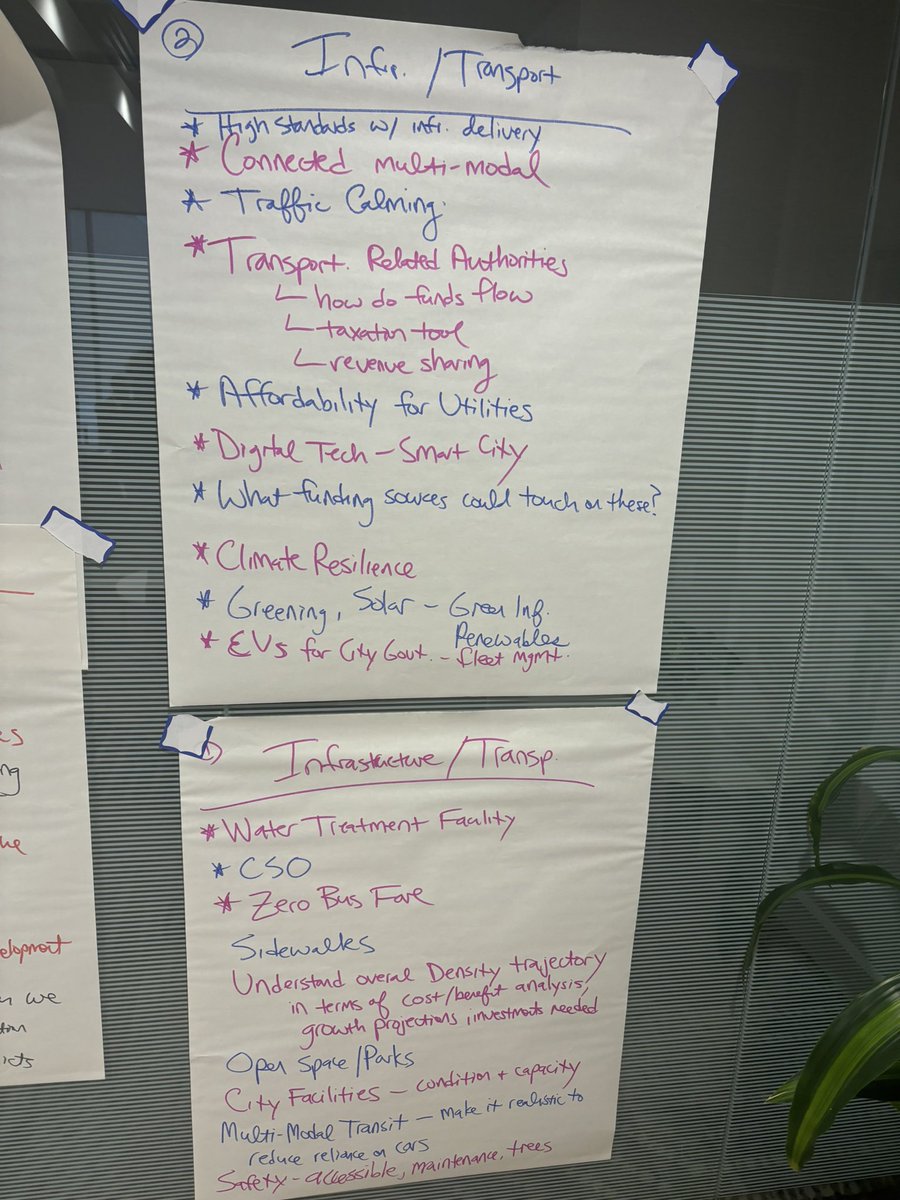 2
Infr. / Transport
* High Standards w/ infr. delivery
* Connected multi-modal
* Traffic Calming.
* Transport. Related Authorities
how do funds flow
taxation tool
revenue sharing
* Affordability for Utilities
* Digital Tech - Smart City
* What funding sources could touch on these?
* Climate Resilience
* Greening, Solar - Green Inf.
Renewables
* EVs for City Govt. - fleet mgmt.
1)
Infrastructure / Transp.
* Water Treatment Facility
* CSO
* Zero Bus Fare
Sidewalks
Understand overall Density trajectory
in terms of cost/benefit analysis,
growth projections, investments needed
Open Space / Parks
City Facilities - condition + capacity
Multi-Modal Transit - make it realistic to
reduce reliance on cars
Safety - accessible, maintenance, trees
elopment
we